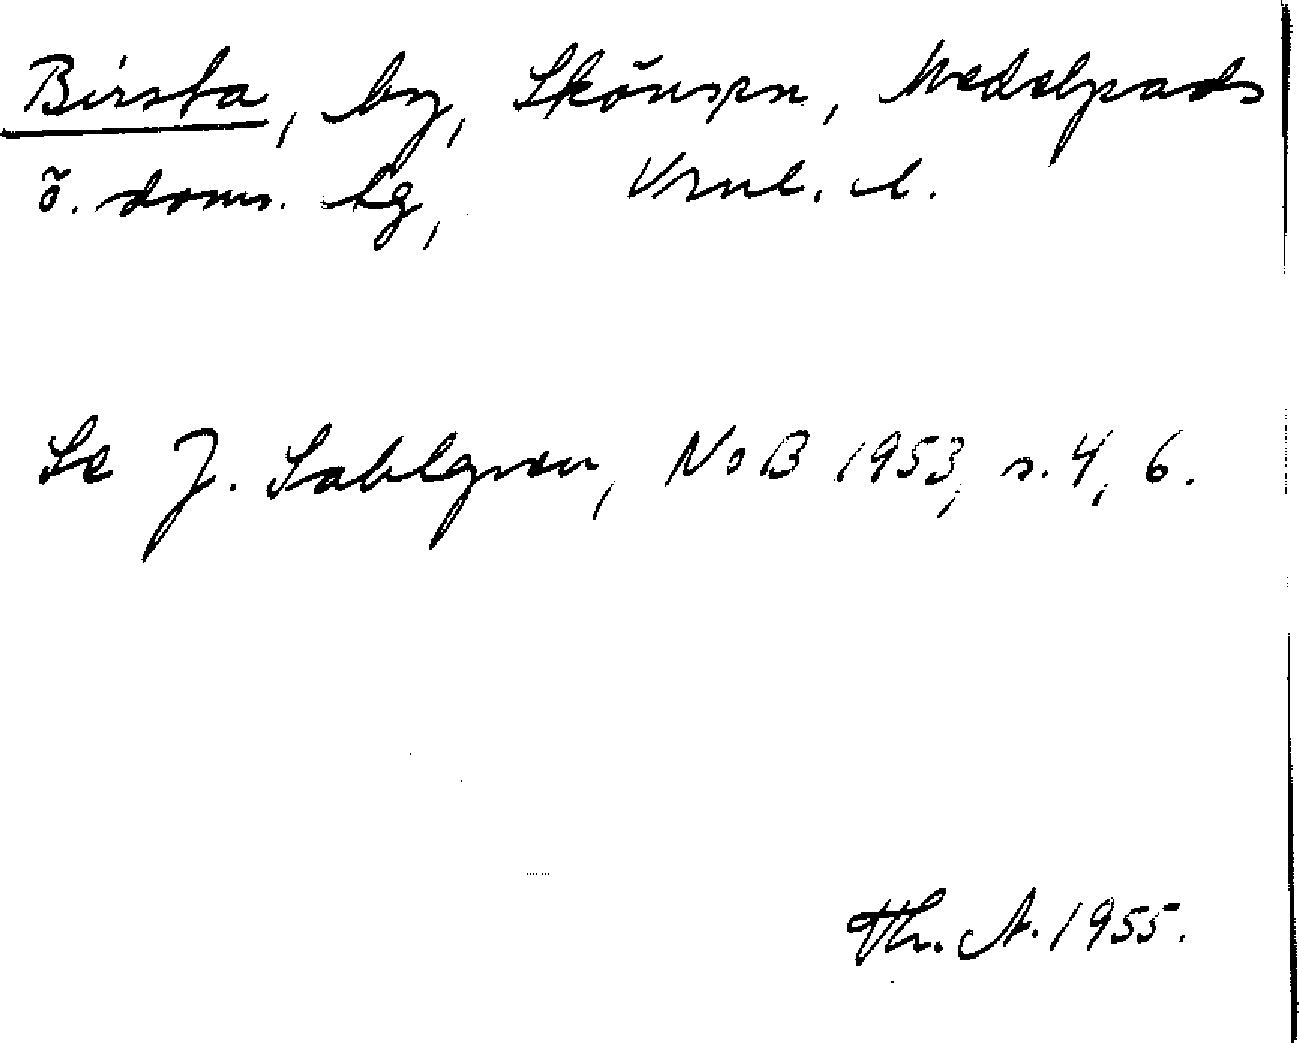 Birsta, by, Skönspn, Medelpads
ö. doms. hg, Vrnl. l.
Se J. Sahlgren, NoB 1953, s. 4, 6.
Th. A. 1955.